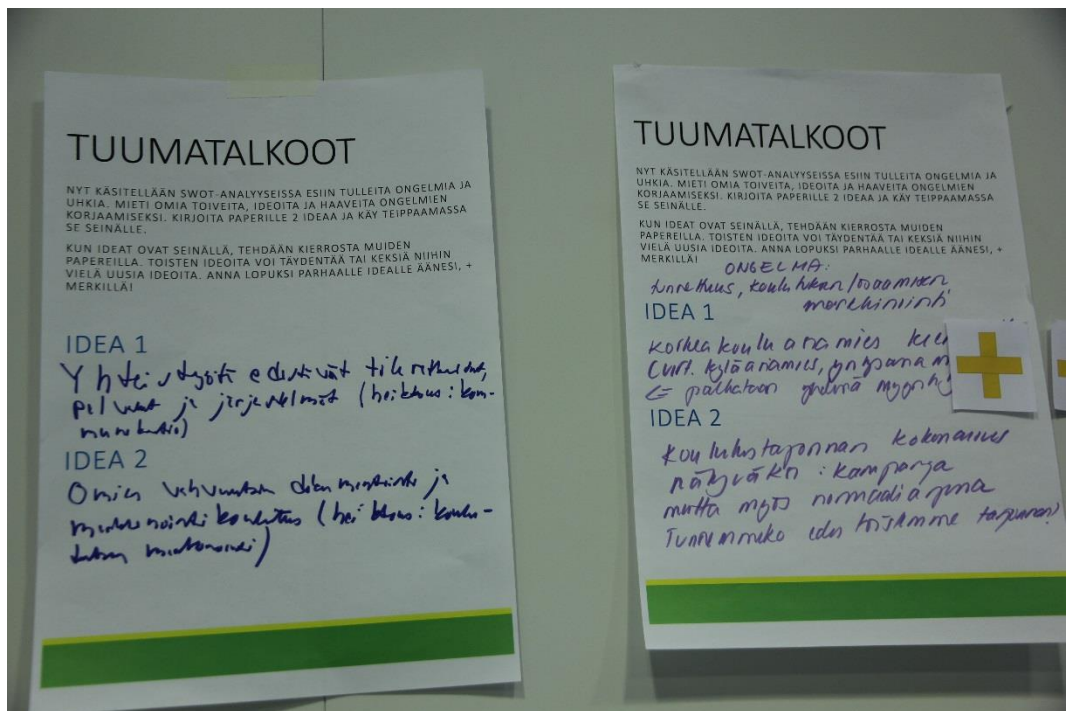 TUUMATALKOOT
NYT KÄSITELLÄÄN SWOT-ANALYYSEISSA ESIIN TULLEITA ONGELMIA JA
UHKIA. MIETI OMIA TOIVEITA, IDEOITA JA HAAVEITA ONGELMIEN
KORJAAMISEKSI. KIRJOITA PAPERILLE 2 IDEAA JA KÄY TEIPPAAMASSA
SE SEINÄLLE.
KUN IDEAT OVAT SEINÄLLÄ, TEHDÄÄN KIERROSTA MUIDEN
PAPEREILLA. TOISTEN IDEOITA VOI TÄYDENTÄÄ TAI KEKSIÄ NIIHIN
VIELÄ UUSIA IDEOITA. ANNA LOPUKSI PARHAALLE IDEALLE ÄÄNESI, +
MERKILLÄ!
IDEA 1
Yhteistyötä edistävät
pilvet ja järjestelmät (heikkous: kom-
munikaatio)
IDEA 2
Omien vahvuuksien ja
markkinointikoulutus (heikkous: koulu-
tuksen markkinointi)
TUUMATALKOOT
NYT KÄSITELLÄÄN SWOT-ANALYYSEISSA ESIIN TULLEITA ONGELMIA JA
UHKIA. MIETI OMIA TOIVEITA, IDEOITA JA HAAVEITA ONGELMIEN
KORJAAMISEKSI. KIRJOITA PAPERILLE 2 IDEAA JA KÄY TEIPPAAMASSA
SE SEINÄLLE.
KUN IDEAT OVAT SEINÄLLÄ, TEHDÄÄN KIERROSTA MUIDEN
PAPEREILLA. TOISTEN IDEOITA VOI TÄYDENTÄÄ TAI KEKSIÄ NIIHIN
VIELÄ UUSIA IDEOITA. ANNA LOPUKSI PARHAALLE IDEALLE ÄÄNESI, +
MERKILLÄ!
ONGELMA:
tunnettuus, koulutuksen/osaamisen
markkinointi
IDEA 1
Korkeakouluasiamies
(vrt. kyläasiamies,
palkataan yhdessä
IDEA 2
Koulutustarjonnan kokonaisuus
näkyväksi: kampanja
mutta myös normaali arjessa
Tunnemmeko edes toistemme tarjonnan?